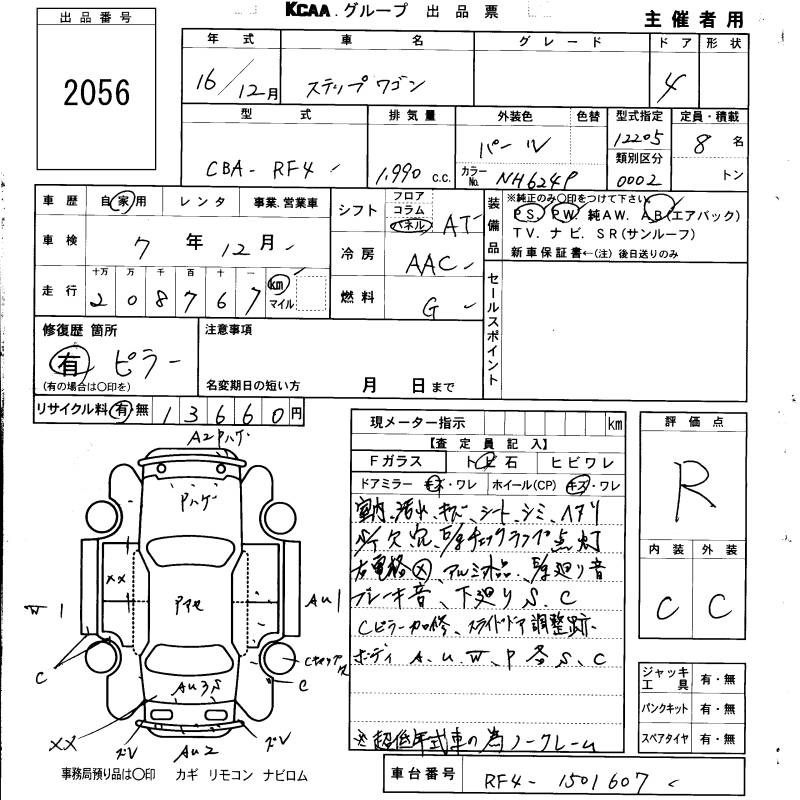 KCAA.グループ 出品票
主催者用
出品番号
2056
年式 車名 グレード ドア 形状
16/12月 ステップワゴン 4
型式 排気量 外装色 色替 型式指定 定員・積載
CBA-RF4 1,990 c.c. パール 12205 8名
カラーNo. NH624P 類別区分 0002 トン
車歴 自家用 レンタ 事業.営業車
車検 7年12月
走行 十万 万 千 百 十 一
2 0 8 7 6 7 km マイル
シフト フロア コラム パネル AT
冷房 AAC
燃料 G
装備品
※純正のみ〇印をつけて下さい
PS. PW. 純AW. AB(エアバック)
TV. ナビ. SR(サンルーフ)
新車保証書←(注)後日送りのみ
セールスポイント
修復歴 箇所
有 ピラー
(有の場合は〇印を)
注意事項
名変期日の短い方 月 日まで
リサイクル料 有・無 13660円
現メーター指示 km
【査定員記入】
Fガラス トビ石 ヒビワレ
ドアミラー キズ・ワレ ホイール(CP) キズ・ワレ
室内、汚れ、キズ、シート、シミ、ヘタリ
欠、穴、チェックランプ点灯
右電格×、アルミ社外品、廻り音
ブレーキ音、下廻りS、C
Cピラー加修、スライドドア調整跡
ボディ A、U、W、P 各S、C
※超低年式車の為ノークレーム
評価点
R
内装 外装
C C
A2Pハゲ
Pハゲ
××
Pアセ
W1
AU1
C
C
AU3S
××
AU2
ジャッキ工具 有・無
パンクキット 有・無
スペアタイヤ 有・無
事務局預り品は〇印 カギ リモコン ナビロム
車台番号 RF4-1501607